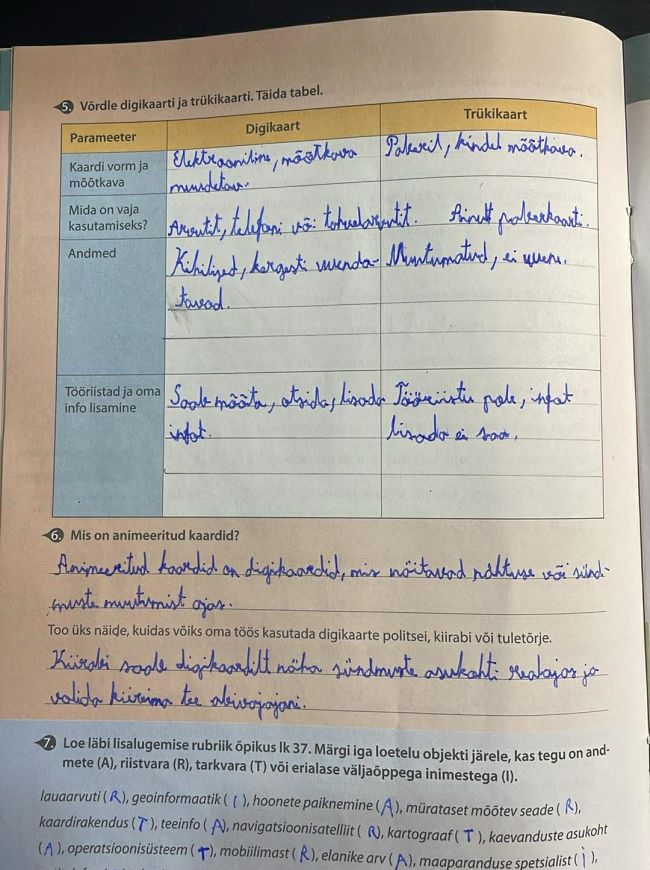 5. Võrdle digikaarti ja trükikaarti. Täida tabel.
Parameeter Digikaart Trükikaart
Kaardi vorm ja mõõtkava
Elektrooniline, mõõtkava
muudetav.
Paberil, kindel mõõtkava.
Mida on vaja kasutamiseks?
Arvutit, telefoni või tahvelarvutit. Ainult paberkaarti.
Andmed
Kihilised, kergesti uuenda-
tavad.
Muutumatud, ei uuene.
Tööriistad ja oma info lisamine
Saab mõõta, otsida, lisada
infot.
Tööriistu pole, infot
lisada ei saa.
6. Mis on animeeritud kaardid?
Animeeritud kaardid on digikaardid, mis näitavad nähtuse või sünd-
muste muutumist ajas.
Too üks näide, kuidas võiks oma töös kasutada digikaarte politsei, kiirabi või tuletõrje.
Kiirabi saab digikaardilt näha sündmuste asukohti reaalajas ja
valida kiireima tee abivajajani.
7. Loe läbi lisalugemise rubriik õpikus lk 37. Märgi iga loetelu objekti järele, kas tegu on and-
mete (A), riistvara (R), tarkvara (T) või erialase väljaõppega inimestega (I).
lauaarvuti (R), geoinformaatik (i), hoonete paiknemine (A), mürataset mõõtev seade (R),
kaardirakendus (T), teeinfo (A), navigatsioonisatelliit (R), kartograaf (T), kaevanduste asukoht
(A), operatsioonisüsteem (T), mobiilimast (R), elanike arv (A), maaparanduse spetsialist (i),